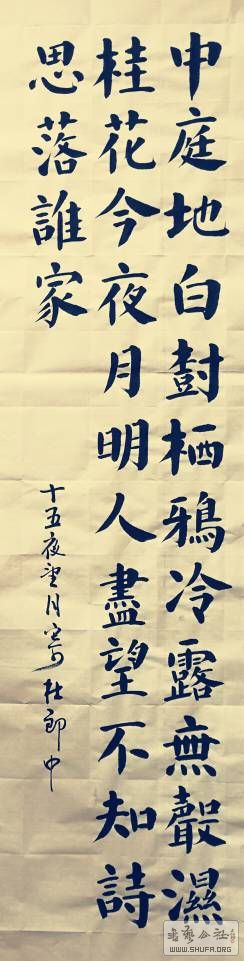 申庭地白尌栖鴉冷露無聲濕
桂花今夜月明人盡望不知詩
思落誰家
十五夜望月寄杜郎中
书艺公社
WWW.SHUFA.ORG